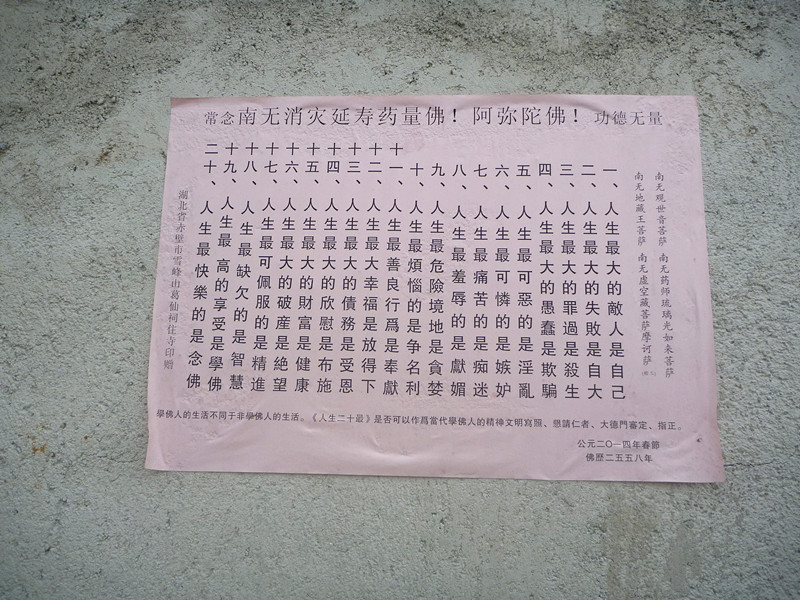 常念南无消灾延寿药量佛！阿弥陀佛！功德无量
南无观世音菩萨 南无药师琉璃光如来菩萨
南无地藏王菩萨 南无虚空藏菩萨摩诃萨
一、人生最大的敵人是自己
二、人生最大的失敗是自大
三、人生最大的罪過是殺生
四、人生最大的愚蠢是欺騙
五、人生最可惡的是淫亂
六、人生最可憐的是嫉妒
七、人生最痛苦的是痴迷
八、人生最羞辱的是獻媚
九、人生最危險境地是貪婪
十、人生最煩惱的是争名利
十一、人生最善良行爲是奉獻
十二、人生最大幸福是放得下
十三、人生最大的債務是受恩
十四、人生最大的欣慰是布施
十五、人生最大的財富是健康
十六、人生最大的破産是絶望
十七、人生最可佩服的是精進
十八、人生最缺欠的是智慧
十九、人生最高的享受是學佛
二十、人生最快樂的是念佛
湖北省赤壁市雪峰山葛仙祠住寺印贈
學佛人的生活不同于非學佛人的生活。《人生二十最》是否可以作爲當代學佛人的精神文明寫照、懇請仁者、大德門審定、指正。
公元二〇一四年春節
佛歷二五五八年